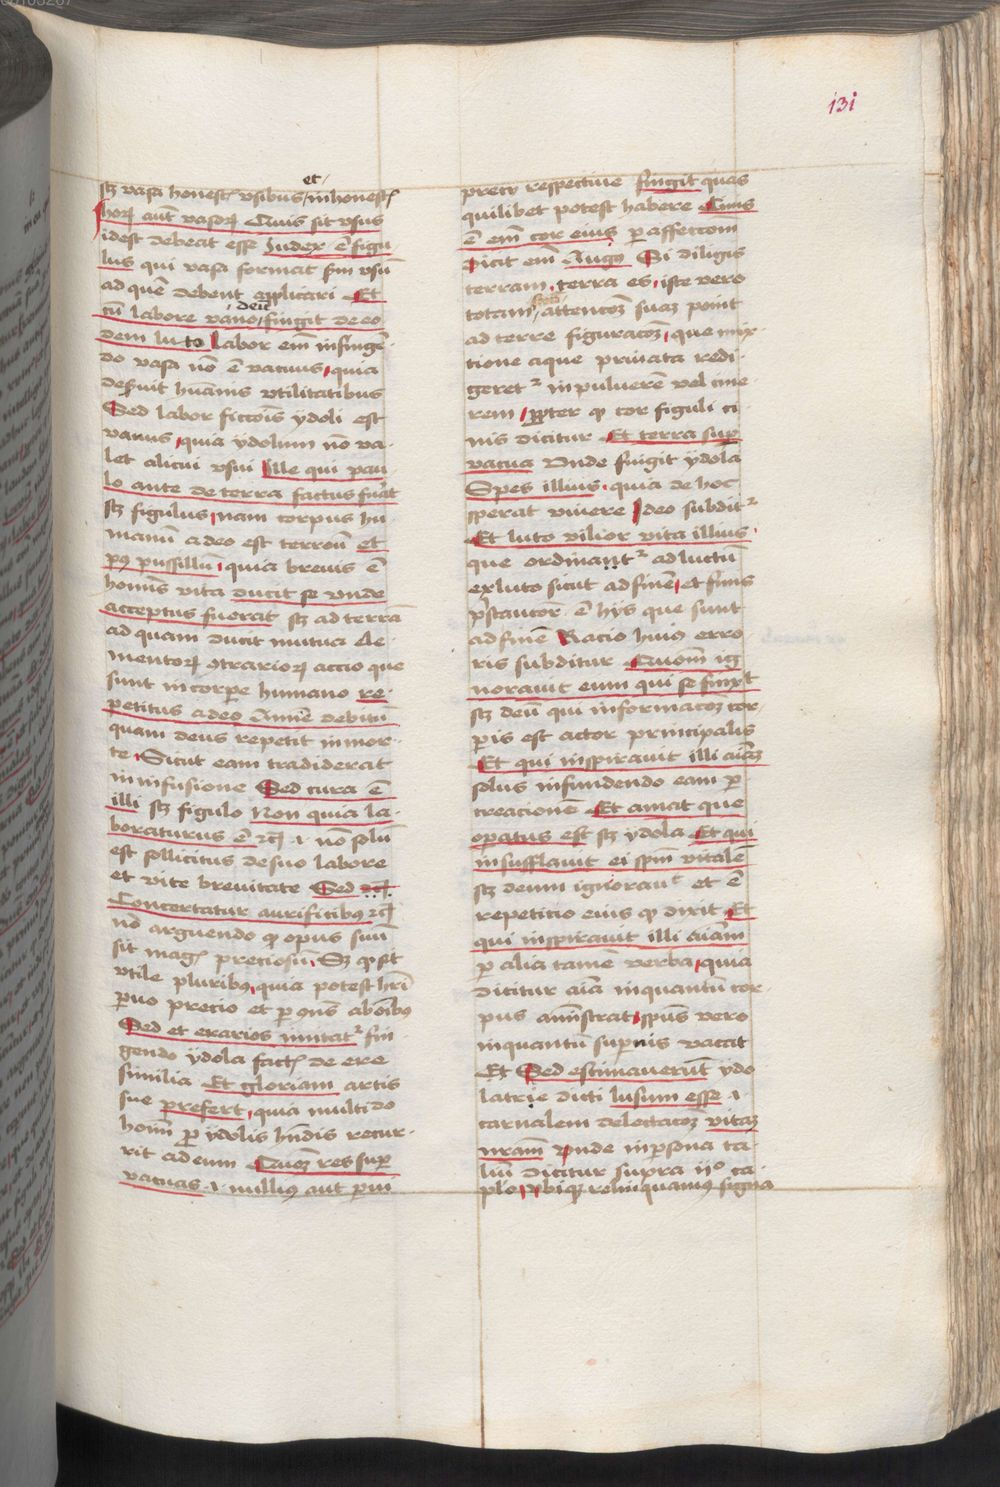 131
et
scz vasa honest' vsibus / inhonest'
horꝝ aut vasorꝝ Cuius sit vsus
idest debeat esse Iudex ē figu
lus qui vasa format scdm vsū
ad quē debent applicari Et
deū
cū labore vano / fingit de eo
dem luto Labor em in fingē
do vasa nō ē vacuus, quia
deseruit huānis vtilitatibus
Sed labor fictōis ydoli est
vanus, quia ydolum nō va
let alicui vsui Ille qui pau
lo ante de terra factus fuāt
scz figulus, nam corpus hu
manū adeo est terreū et
pꝰ pussillū, quia breuis ē
homis vita ducit se vnde
acceptus fuerat scz ad terrā
ad quam ducit mutua ele
mentorꝝ ꝯtrariorꝝ accio que
sunt in corpe humano re
petitus a deo Anīe debitū
quam deus repetit in mor
te, Sicut eam tradiderat
in infusione Sed cura ē
illi scz figulo Non quia la
boraturus ē rcꝫ .i. nō solū
est sollicitus de suo labore
et vite breuitate Sed rcꝫ
Concertatur aurificibus rcꝫ
nō arguendo qꝫ opus suū
sit mag' preciosū, Sꝫ qꝫ sit
vtile pluribꝰ, quia potest hri
paruo precio et per ꝯns ab oībꝰ
Sed et erarios imitat' fin
gendo ydola fact' de ere
similia Et gloriam artis
sue prefert, quia multi do
homī per ydolis hndis recur
rit ad eum Cuoꝫ res super
vacuas .i. nullius aut parui
precii respectiue fingit quas
quilibet potest habere Cinis
ē em cor eius per affectom
Dicit em Augꝰ Si diligis
terram, terra es, iste vero
totam attencoꝫ suaꝫ ponit
ad terre figuracoꝫ, que mix
tione aque priuata redi
geret' in puluerē vel cine
rem, propter qꝫ cor figuli ci
nis dicitur Et terra super
vacua Vnde fingit ydola
Spes illius, quia de hoc
sperat viuere Ideo subdit'
Et luto vilior vita illius,
que ordinant' ad luctū
ex luto sicut ad finē, et finis
pstancior ē hys que sunt
ad finē Racio huiꝰ erro
ris subditur Cuom ig
norauit eum qui se finxit
scz deū qui in formacoꝫ cor
poris est actor principalis
Et qui inspirauit illi aīaꝫ
solus infundendo eam per
creacionē Et amat que
operatus est scz ydola Et qui
insufflauit ei spm vitalē
scz deum ignorauit et ē
repeticio eius qꝫ dixit Et
qui inspirauit illi aīam
per alia tamē verba, quia
dicitur aīa inquantū cor
pus amistrat, spūs vero
inquantū supernis vacat
Et Sed estimauerūt ydo
latrie dicti lusum esse .i.
carnalem delectacoꝫ vitaꝫ
nram Vnde in persona ta
liū dicitur supra ijº ca
plo, vbiqꝫ relinquamꝰ signa